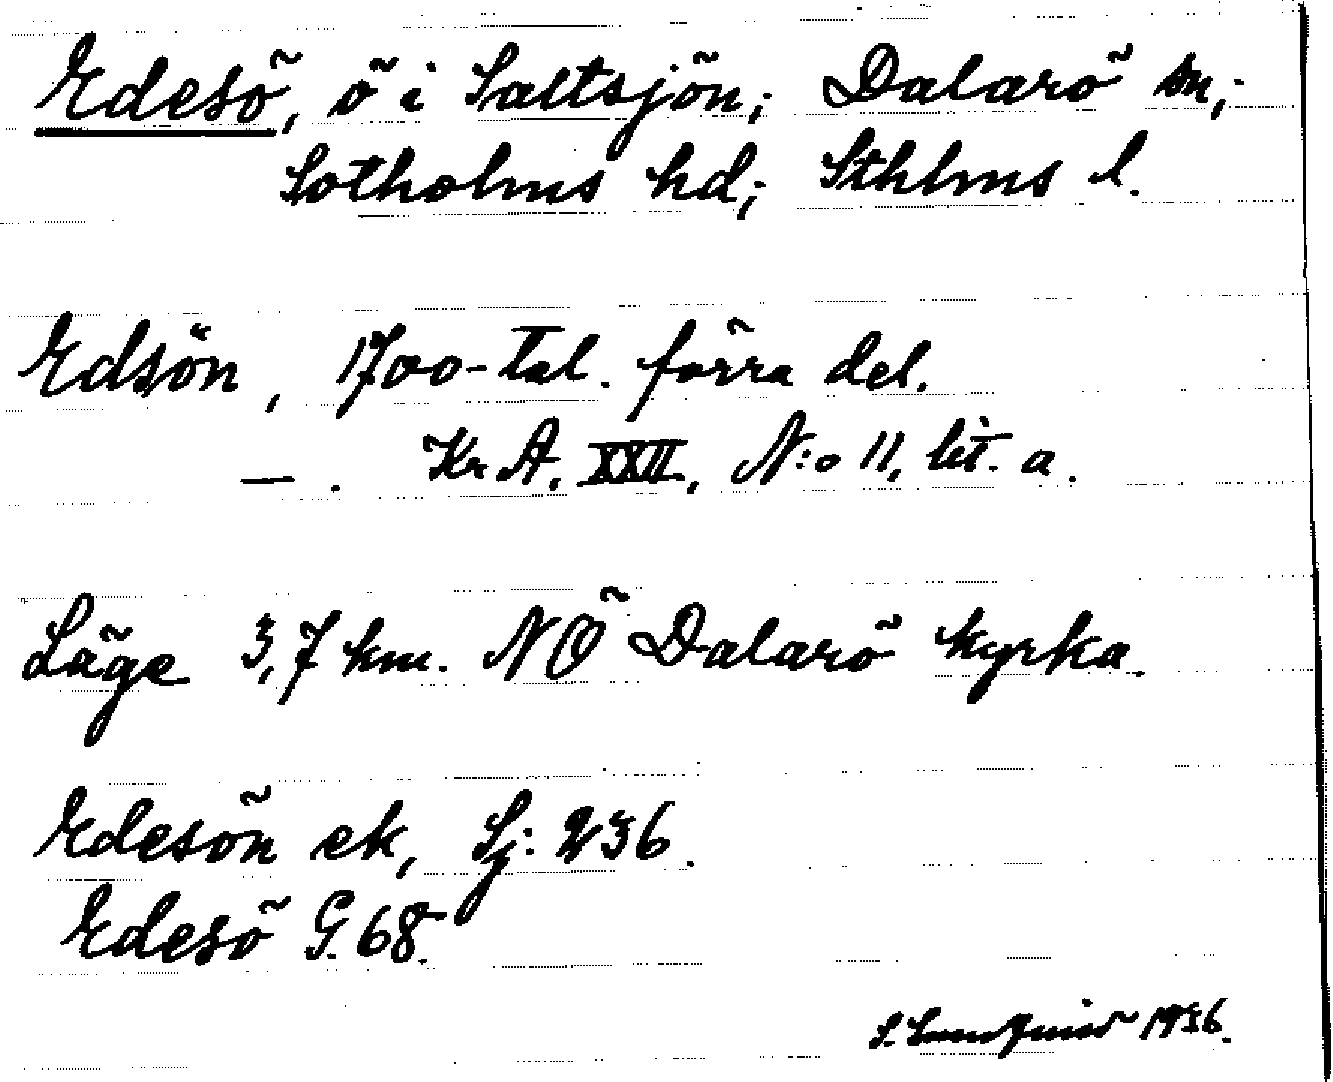 Edesö, ö i Saltsjön; Dalarö sn;
Sotholms hd; Sthlms l.
Edsön, 1700-tal. förra del.
— . Kr A. XXII, N:o 11, lit. a.
Läge 3,7 km. NÖ Dalarö kyrka.
Edesön ek, Sj: 236.
Edesö G. 68.
S. Lundquist 1936.